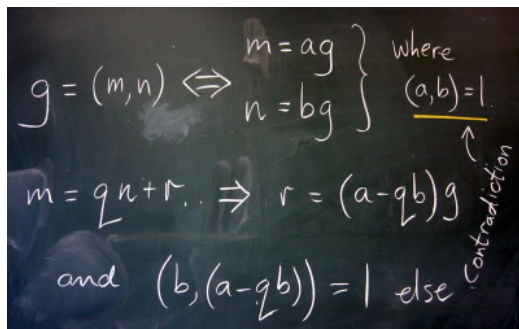 m = ag
g = (m,n) ⇔ } where
n = bg
(a,b) = 1.
m = qn + r.. ⇒ r = (a-qb)g
and (b,(a-qb)) = 1 else
Contradiction